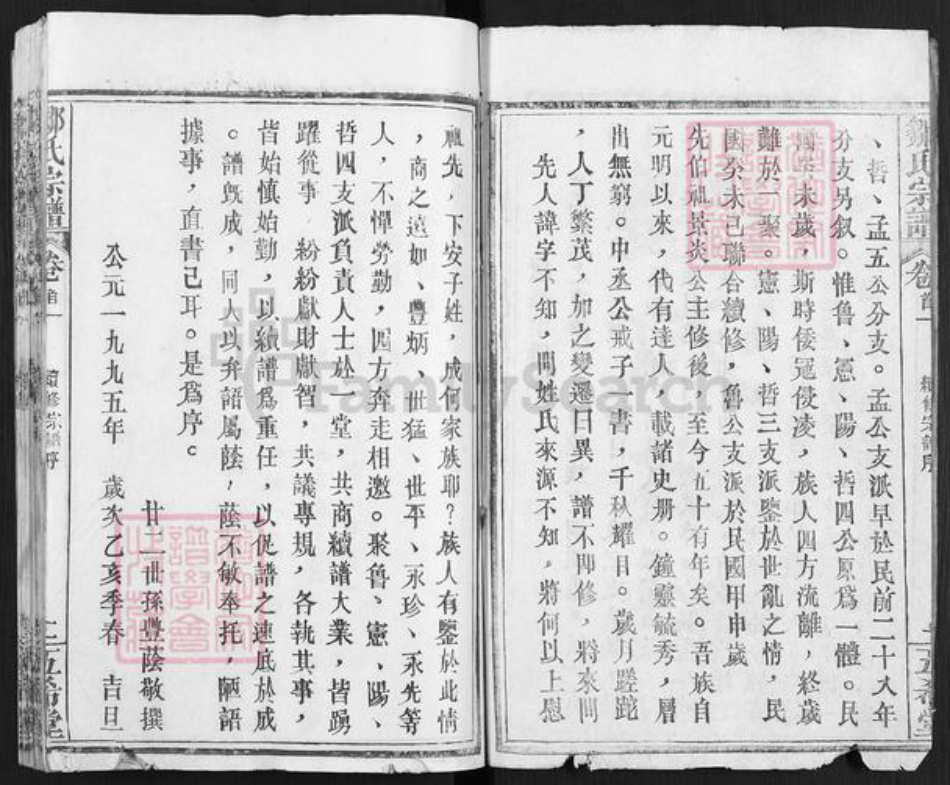 、哲、孟五公分支。孟公支派早於民前二十八年
分支另叙。惟魯、憲、陽、哲四公原爲一體。民
國癸未歲,斯時倭寇侵凌,族人四方流離,終歲
難於一聚。憲、陽、哲三支派鑒於世亂之情,民
國癸未已聯合續修,魯公支派於民國甲申歲
先伯祖景炎公主修後,至今五十有年矣。吾族自
元明以來,代有達人,載諸史册。鐘靈毓秀,層
出無窮。中丞公戒子一書,千秋耀目。歲月蹉跎
,人丁繁茂,加之變遷日異,譜不即修,將來問
先人諱字不知,問姓氏來源不知,將何以上慰
鄒氏宗譜 卷首一 續修宗譜序 二 五希堂
祖先,下安子姓,成何家族耶?族人有鑒於此情
,商之遠如、豐炳、世猛、世平、永珍、永先等
人,不憚勞勤,四方奔走相邀。聚魯、憲、陽、
哲四支派負責人士於一堂,共商續譜大業,皆踴
躍從事,紛紛獻財獻智,共議專規,各執其事,
皆始慎始勤,以續譜爲重任,以促譜之速底於成
。譜既成,同人以弁語屬蔭,蔭不敏奉托,陋語
據事,直書已耳。是爲序。
廿二世孫豐蔭敬撰
公元一九九五年 歲次乙亥季春 吉旦
鄒氏宗譜 卷首一 續修宗譜序 二 五希堂
FamilySearch